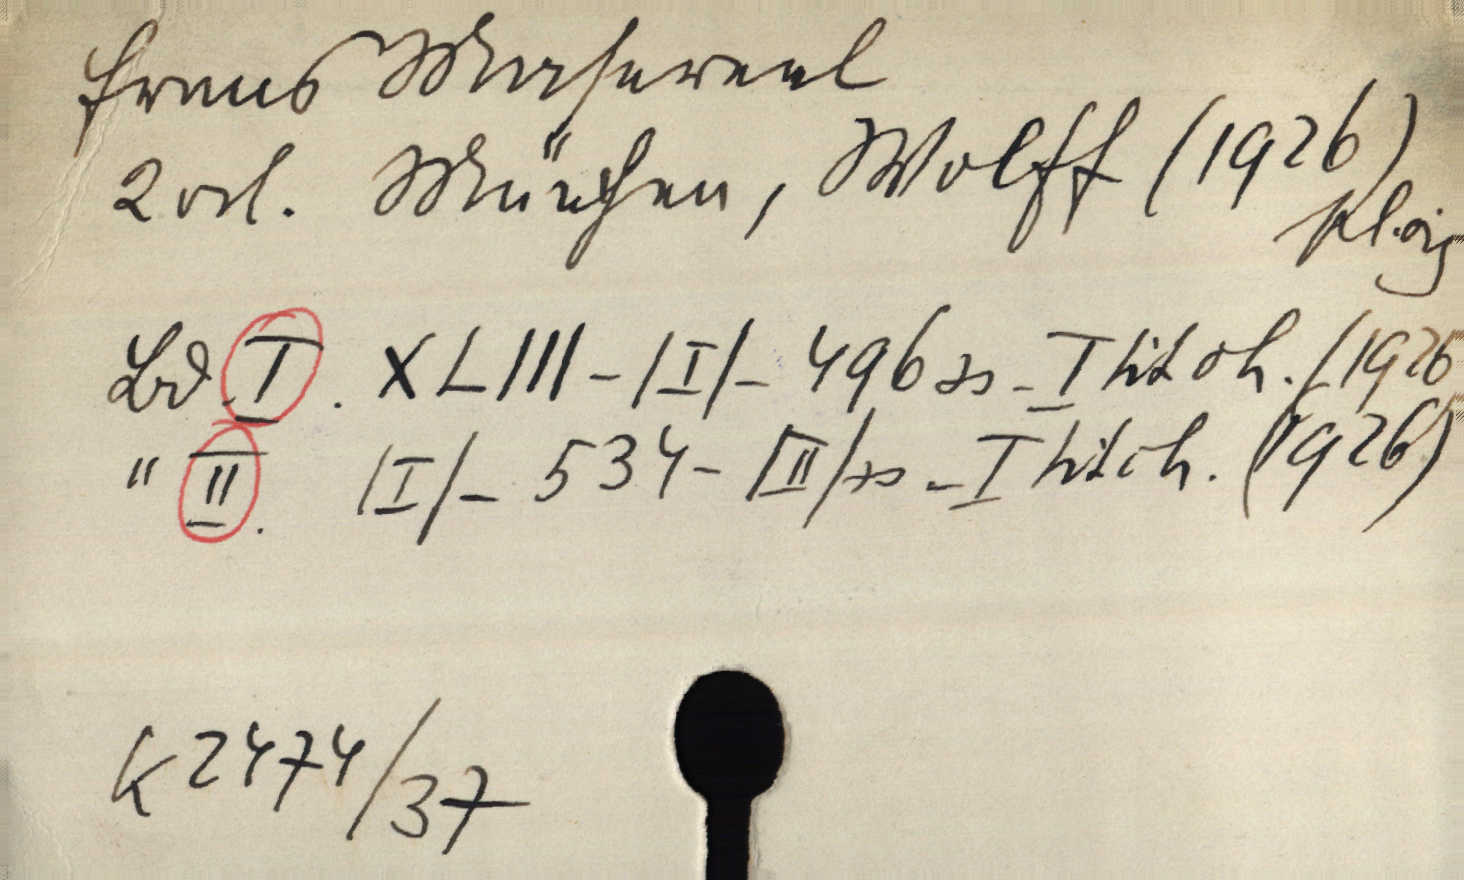 Frans Masereel
2 vol. München, Wolff (1926)
kl.
Bd I. XLIII – |I| – 496 ss – I Titch. (1926
" II. |I| – 534 – |II| ss – I Titch. (1926)
K 2474/37